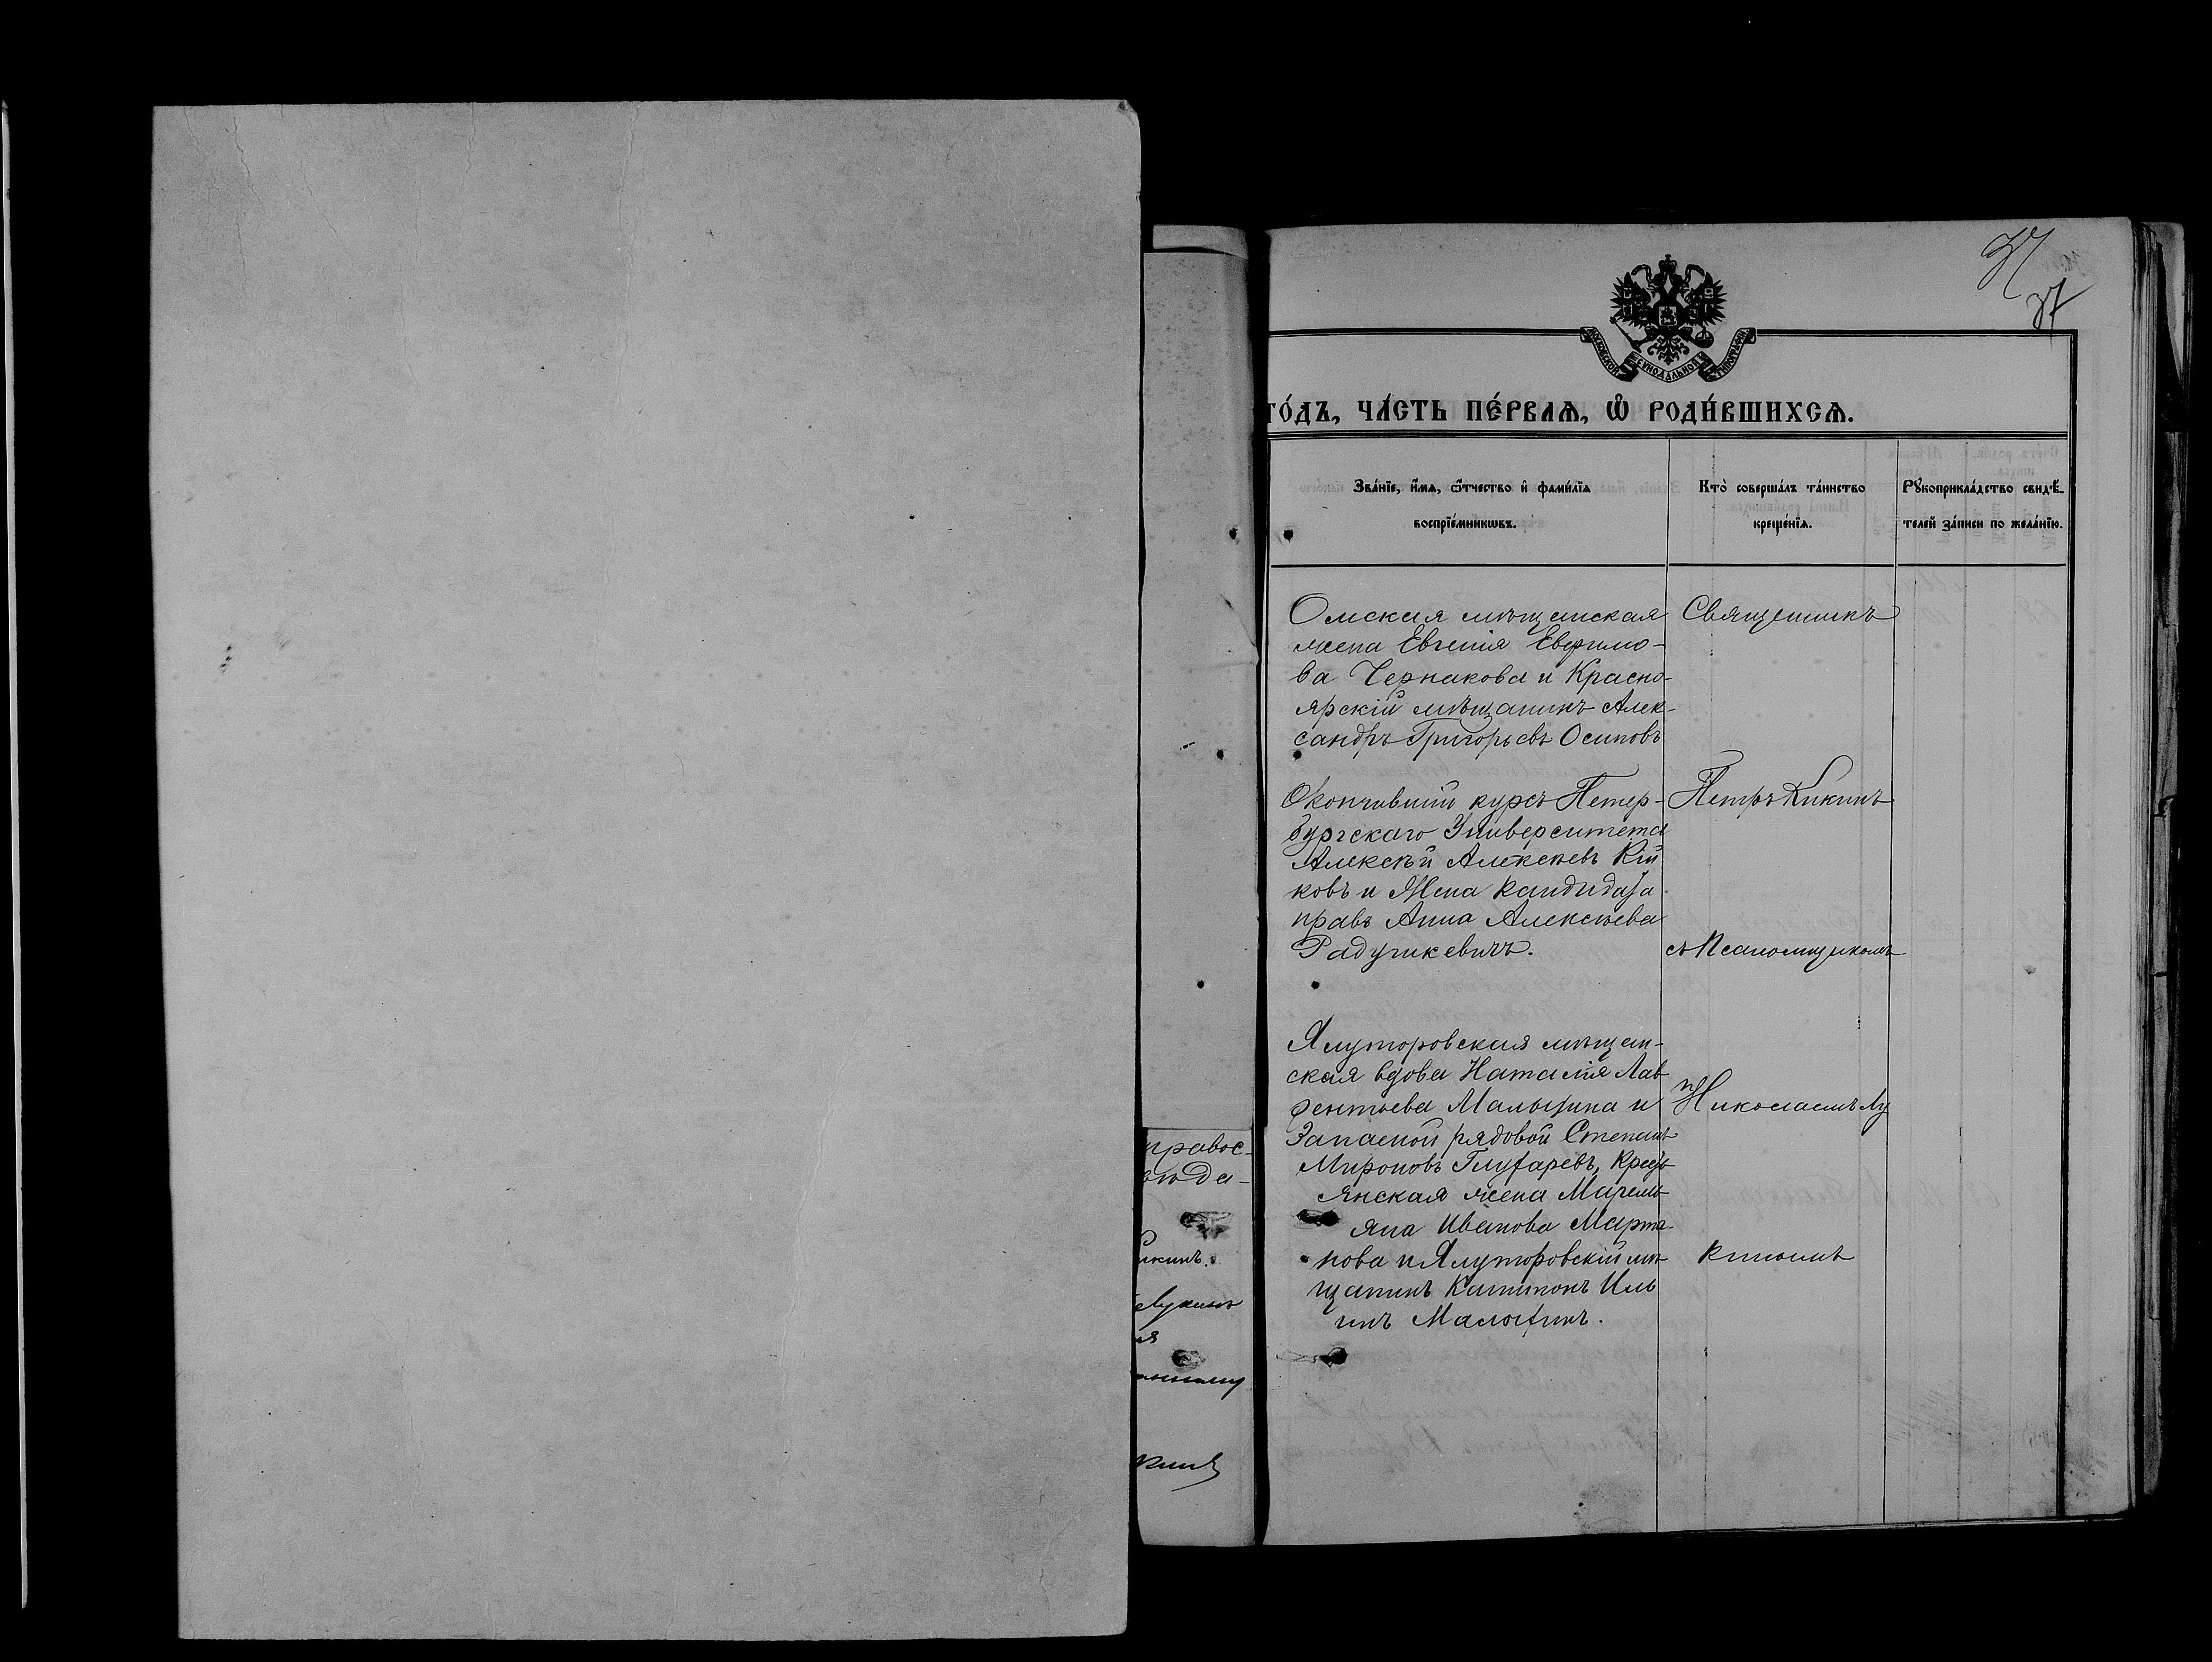 правос-
вѣда-
икинъ.
Лукинъ
ія
кинъ
37
МОСКОВСКОЙ СѴНОДАЛЬНОЙ ТИПОГРАФІИ
го́дъ, ча́сть пе́рваѧ, ѽ роди́вшихсѧ.
Зва́нїе, и҆́мѧ, ѻ҆́тчество и҆ фами́лїѧ
воспрїе́мникѡвъ.
Кто̀ соверша́лъ та́инство
креще́нїѧ.
Рꙋкоприкла́дство свидѣ́-
телей за́писи по жела́нїю.
Омская мѣщанская
жена Евгенія Евфимо-
ва Чернакова и Красно-
ярскій мѣщанинъ Алек-
сандръ Григорьевъ Осиповъ
Священникъ
Окончившій курсъ Петер-
бургскаго Университета
Алексѣй Алексѣевъ Кій
ковъ и Жена кандидата
правъ Анна Алексѣева
Радушкевичъ.
Петръ Кикинъ
съ Псаломщикомъ
Ялуторовская мѣщан-
ская вдова Наталія Лав-
рентьева Малыгина и
Запасной рядовой Степанъ
Мироновъ Глухаревъ, Кресть-
янская жена Маремь-
яна Иванова Марты-
нова и Ялуторовскій мѣ-
щанинъ Капитонъ Иль
инъ Малыгинъ.
Николаемъ Лу
кинымъ